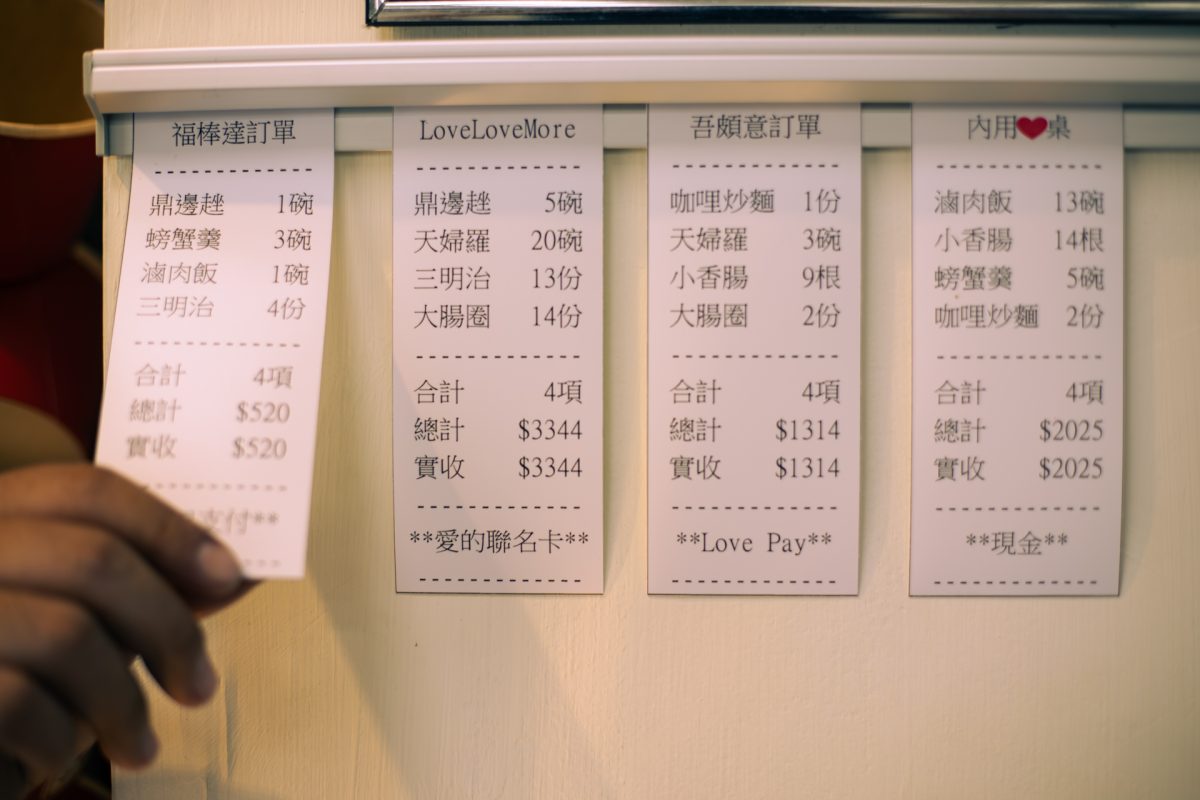 福棒達訂單
--------------
鼎邊趖 1碗
螃蟹羹 3碗
滷肉飯 1碗
三明治 4份
--------------
合計 4項
總計 $520
實收 $520
--------------
支付**
LoveLoveMore
--------------
鼎邊趖 5碗
天婦羅 20碗
三明治 13份
大腸圈 14份
--------------
合計 4項
總計 $3344
實收 $3344
--------------
**愛的聯名卡**
--------------
吾頗意訂單
--------------
咖哩炒麵 1份
天婦羅 3碗
小香腸 9根
大腸圈 2份
--------------
合計 4項
總計 $1314
實收 $1314
--------------
**Love Pay**
--------------
內用❤桌
--------------
滷肉飯 13碗
小香腸 14根
螃蟹羹 5碗
咖哩炒麵 2份
--------------
合計 4項
總計 $2025
實收 $2025
--------------
**現金**
--------------